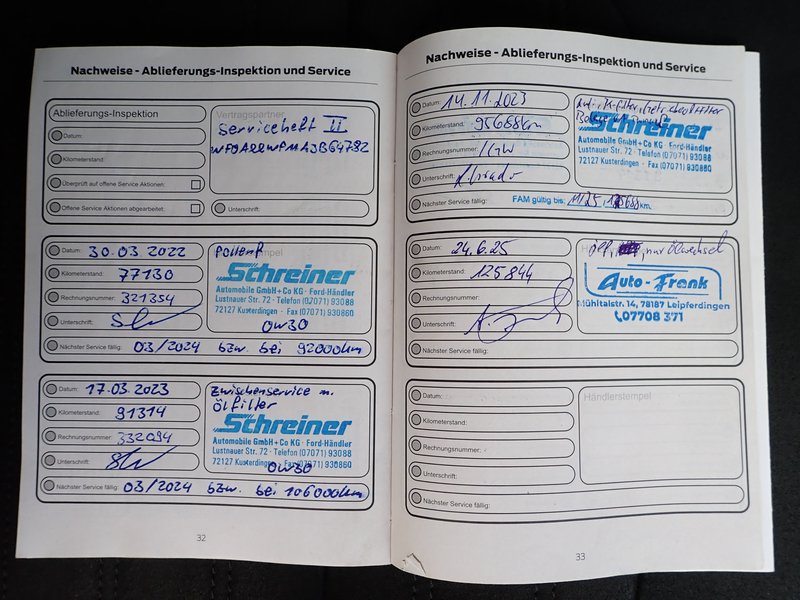 Nachweise - Ablieferungs-Inspektion und Service
Ablieferungs-Inspektion
Datum:
Kilometerstand:
Überprüft auf offene Service Aktionen:
Offene Service Aktionen abgearbeitet:
Vertragspartner
Serviceheft II
Unterschrift:
Datum: 30.03.2022
Kilometerstand: 77130
Rechnungsnummer: 321354
Unterschrift:
Nächster Service fällig: 03/2024 bzw. bei 92000km
Pollenf
Schreiner
Automobile GmbH + Co KG · Ford-Händler
Lustnauer Str. 72 - Telefon (07071) 93088
72127 Kusterdingen - Fax (07071) 930860
0W30
Datum: 17.03.2023
Kilometerstand: 91314
Rechnungsnummer: 332094
Unterschrift:
Nächster Service fällig: 03/2024 bzw. bei 106000km
Zwischenservice m.
Ölfilter
Schreiner
Automobile GmbH + Co KG · Ford-Händler
Lustnauer Str. 72 - Telefon (07071) 93088
72127 Kusterdingen - Fax (07071) 930860
0W30
32
Nachweise - Ablieferungs-Inspektion und Service
Datum: 14.11.2023
Kilometerstand: 95688km
Rechnungsnummer:
Unterschrift:
Nächster Service fällig: FAM gültig bis: 11/25, km.
Schreiner
Automobile GmbH + Co KG · Ford-Händler
Lustnauer Str. 72 - Telefon (07071) 93088
72127 Kusterdingen - Fax (07071) 930860
Datum: 24.6.25
Kilometerstand: 125844
Rechnungsnummer:
Unterschrift:
Nächster Service fällig:
nur Ölwechsel
Auto - Frank
Mühltalstr. 14, 78187 Leipferdingen
07708 371
Datum:
Kilometerstand:
Rechnungsnummer:
Unterschrift:
Nächster Service fällig:
Händlerstempel
33